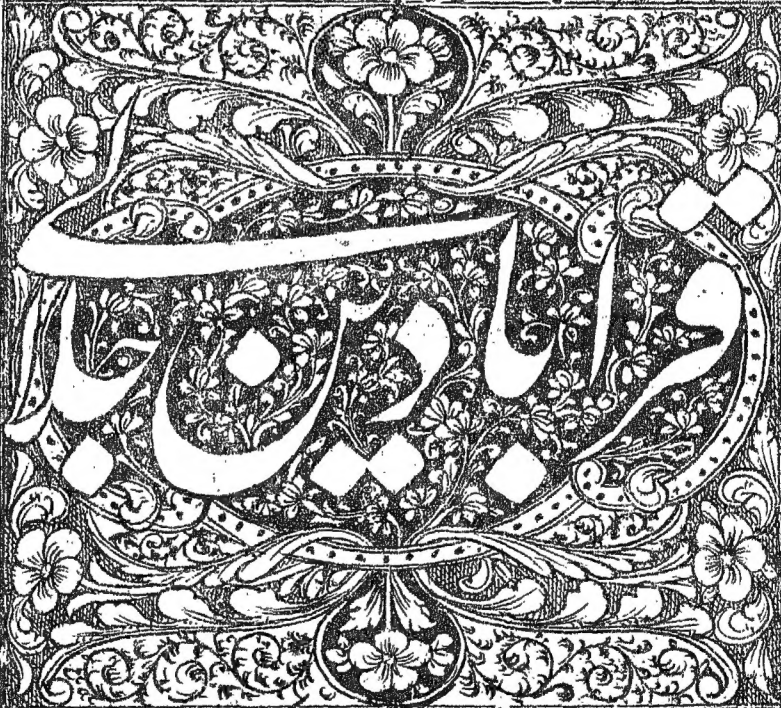 قرابادین جلالے